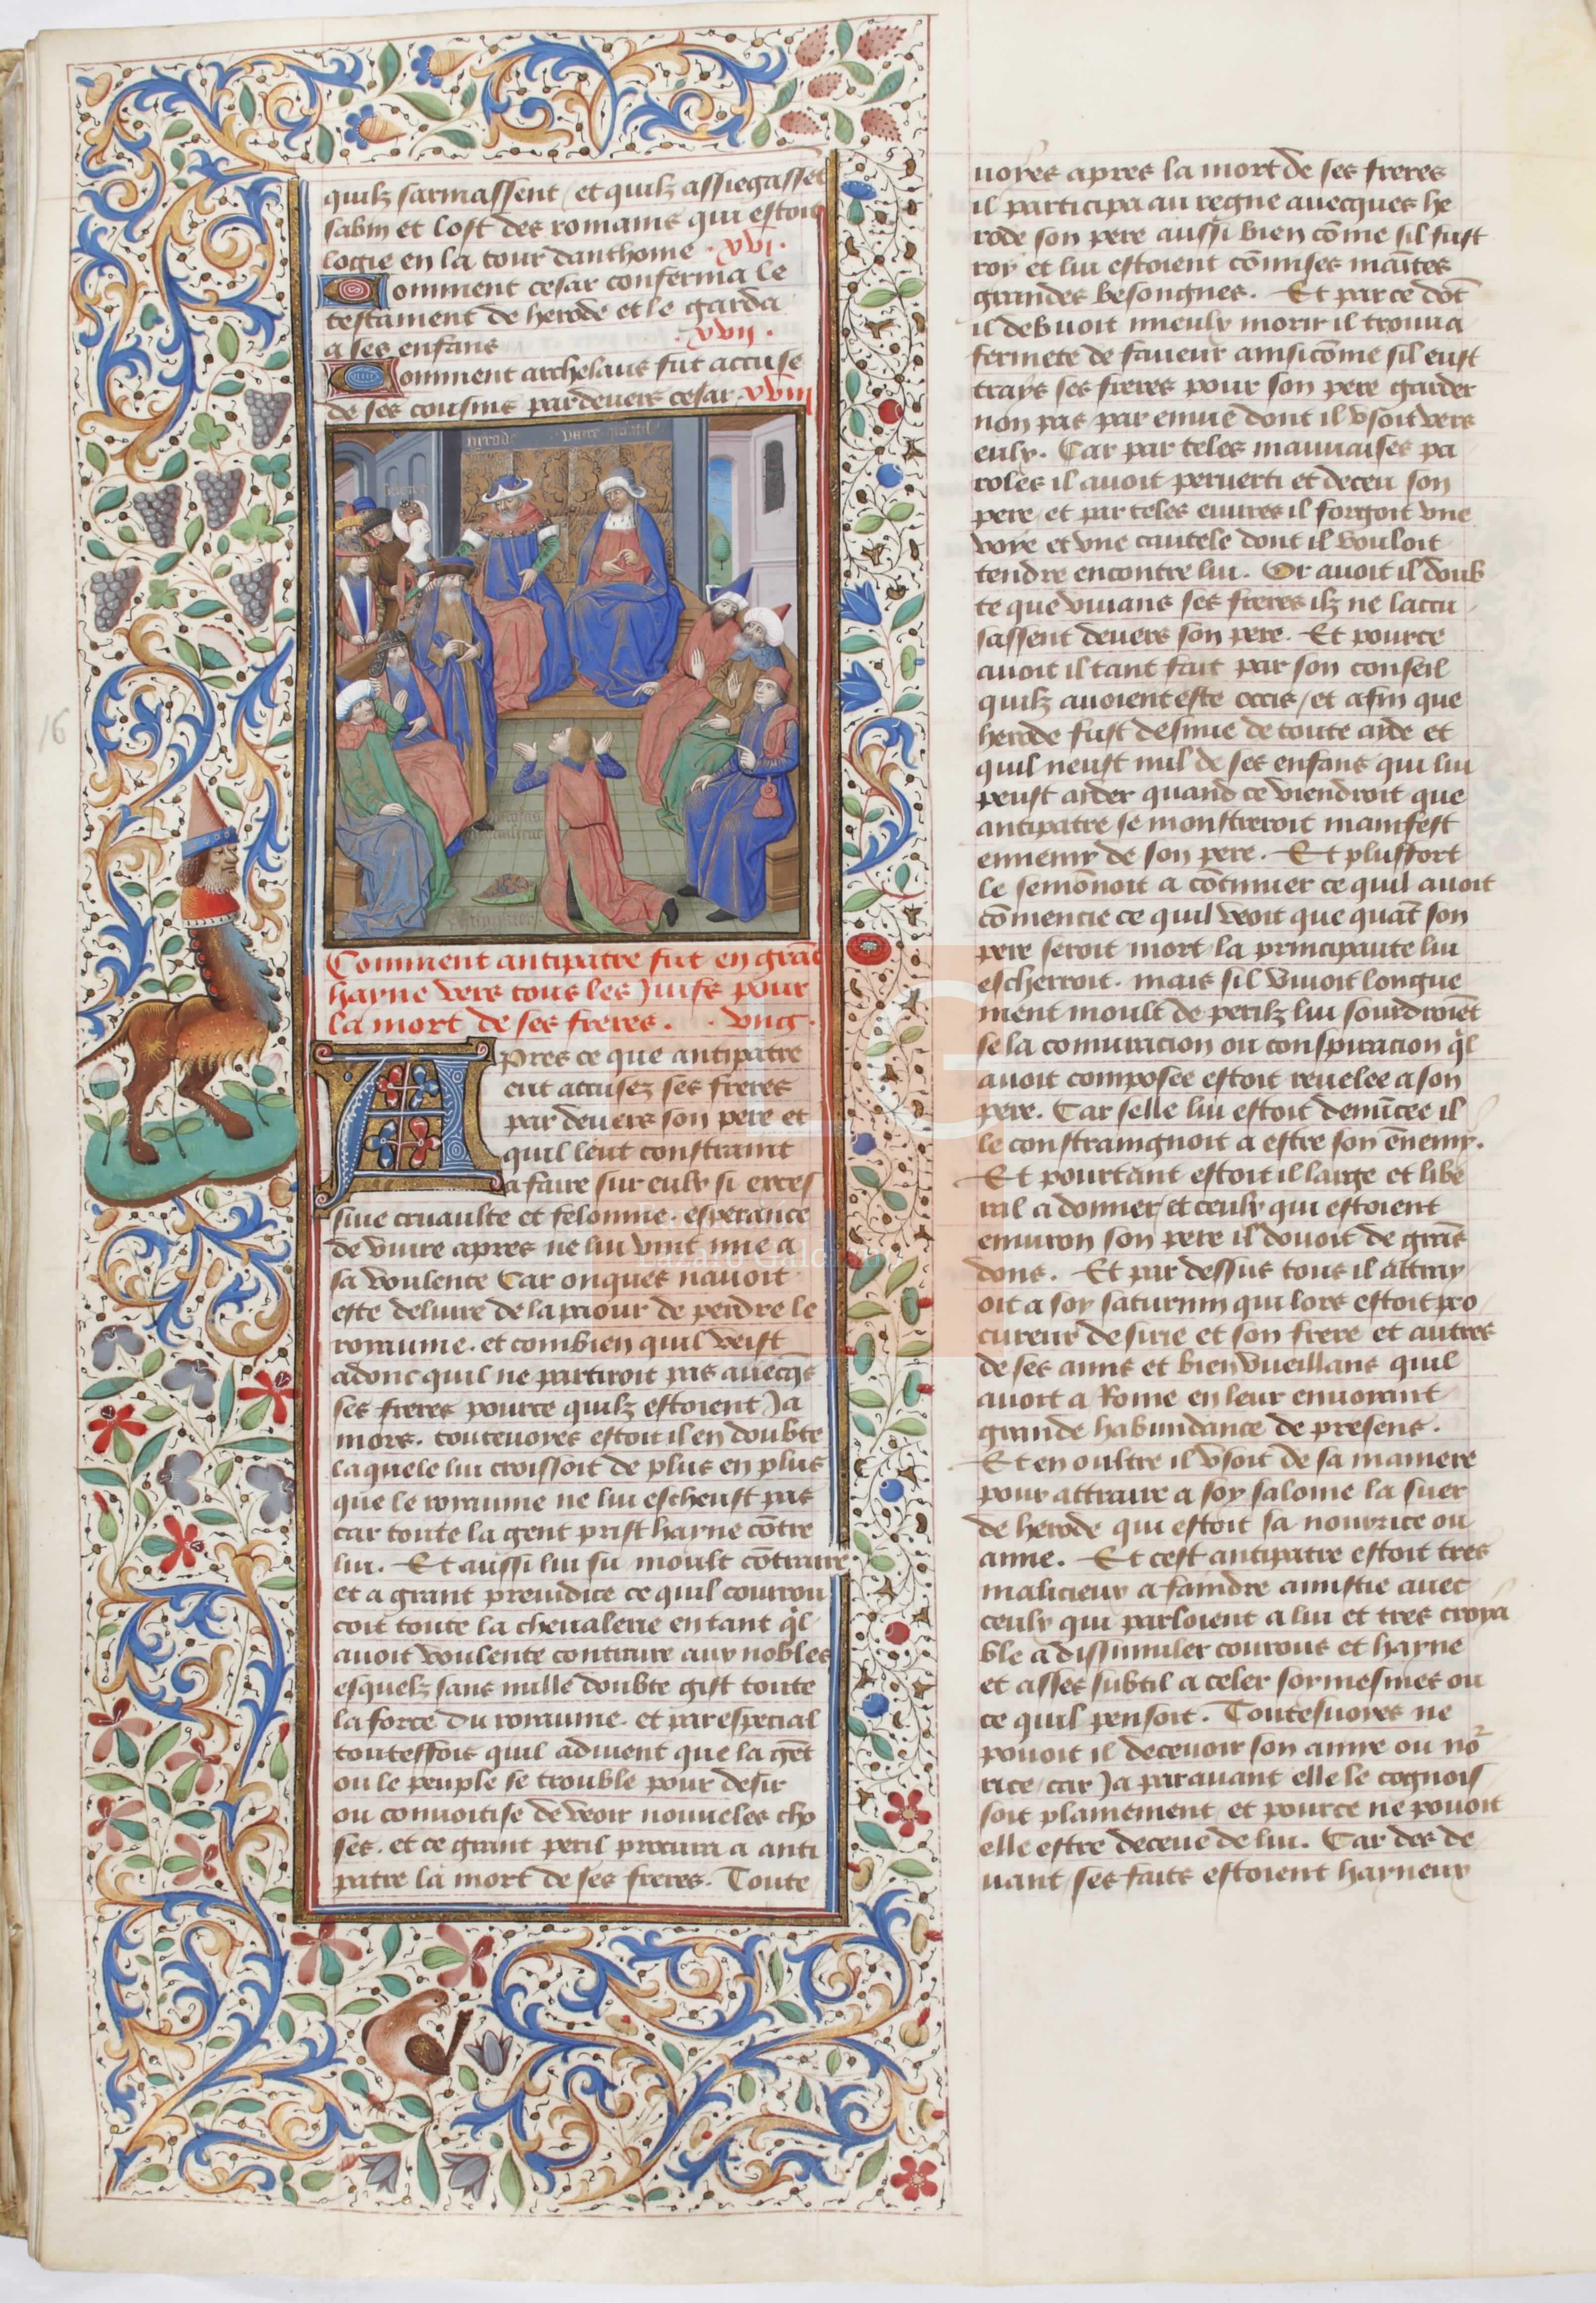 quilz sarmassent / et quilz assiegassēt
sabin et lost des romains qui estoit
logie en la tour danthoine · xvi ·
Comment cesar conferma le
testament de herode et le garda
a ses enfans · xvii ·
Comment archelaus fut accuse
de ses cousins pardevers cesar · xviii
herode
Comment antipatre fut en grāt
hayne vers tous les Juifs pour
la mort de ses freres. · ung ·
Apres ce que antipatre
eut accusez ses freres
par devers son pere et
quil leut constraint
a faire sur eulx si exces
sive cruaulte et felonnie, esperance
de vivre apres ne lui vint mie a
sa voulente Car onques navoit
este delivre de la paour de perdre le
royaume. et combien quil veist
adonc quil ne partiroit pas avecqs
ses freres pource quilz estoient Ja
mors. toutevoyes estoit il en doubte
laquele lui croissoit de plus en plus
que le royaume ne lui escheust pas
car toute la gent prist hayne cōtre
lui. Et aussi lui fu moult cōtraire
et a grant preiudice ce quil courrou
coit toute la chevalerie en tant ql
avoit voulente contraire aux nobles
esquelz sans nulle doubte gist toute
la force du royaume. et par especial
toutesffois quil advient que la gēt
ou le peuple se trouble pour desir
ou convoitise de veoir nouveles cho
ses. et ce grant peril procura a anti
patre la mort de ses freres. Toute
voyes apres la mort de ses freres
il participa au regne avecques he
rode son pere aussi bien cōme sil fust
roy et lui estoient cōmises maītes
grandes besongnes. Et par ce dōt
il debvoit mieulx morir il trouva
fermete de faveur ainsi cōme sil eust
trays ses freres pour son pere garder
non pas par envie dont il usoit vers
eulx. Car par teles mauvaises pa
roles il avoit perverti et deceu son
pere / et par teles euvres il forgoit une
voye et une cautele dont il vouloit
tendre encontre lui. Or avoit il doub
te que vivans ses freres ilz ne laccu
sassent devers son pere. Et pource
avoit il tant fait par son conseil
quilz avoient este occis / et afin que
herode fust desnue de toute aide et
quil neust nul de ses enfans qui lui
peust aider quand ce viendroit que
antipatre se monstreroit manifest
ennemy de son pere. Et plus fort
le semōnoit a cōtinuer ce quil avoit
cōmencie ce quil veoit que quāt son
pere seroit mort la principaute lui
escherroit. mais sil vivoit longue
ment moult de perilz lui sourdroiēt
se la coniuracion ou conspiracion ql
avoit composee estoit revelee a son
pere. Car selle lui estoit denūcee il
le constraingnoit a estre son ēnemy.
Et pourtant estoit il large et libe
ral a donner / et ceulx qui estoient
environ son pere il douoit de grās
dons. Et par dessus tous il attray
oit a soy saturnin qui lors estoit pro
cureur de sirie et son frere et autres
de ses amis et bien vueillans quil
avoit a Rome en leur envoyant
grande habundance de presens.
Et en oultre il usoit de sa maniere
pour attraire a soy salome la suer
de herode qui estoit sa nourrice ou
amie. Et cest antipatre estoit tres
malicieux a faindre amistie avec
ceulx qui parloient a lui et tres croya
ble a dissimuler courous et hayne
et asses subtil a celer soymesmes ou
ce quil pensoit. Toutesvoyes ne
povoit il decevoir son amye ou no
rice / car Ja paravant elle le cognois
soit plainement / et pource ne povoit
elle estre deceue de lui. Car des de
vant ses faits estoient hayneux
16
Lázaro Galdiano